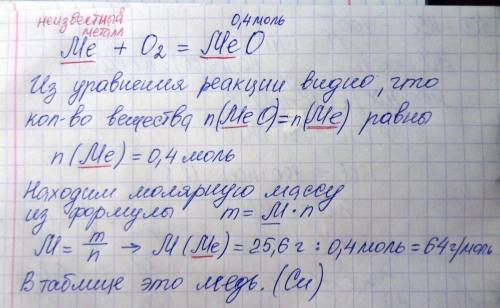 неизвестный
металл
0,4 моль
Ме + O₂ = МеО
Из уравнения реакции видно, что
кол-во вещества n(МеО)=n(Ме) равны
n(Ме) = 0,4 моль
Находим молярную массу
из формулы m = М·n
М = m/n → М(Ме) = 25,6 г : 0,4 моль = 64 г/моль
В таблице это медь. (Cu)